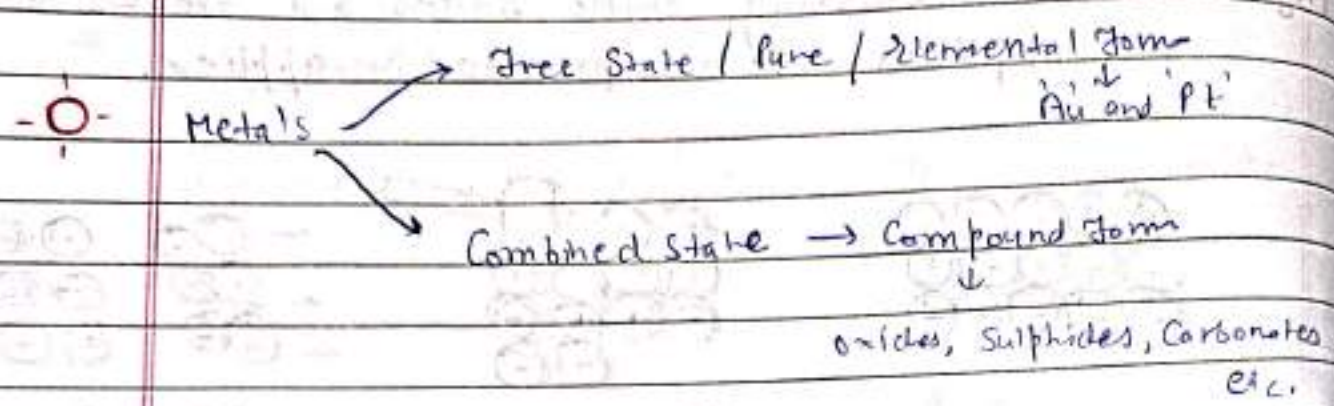 Free State / Pure / Elemental Form
↓
'Au' and 'Pt'
Metal's
Combined State → Compound Form
↓
oxides, Sulphides, Carbonates
etc.